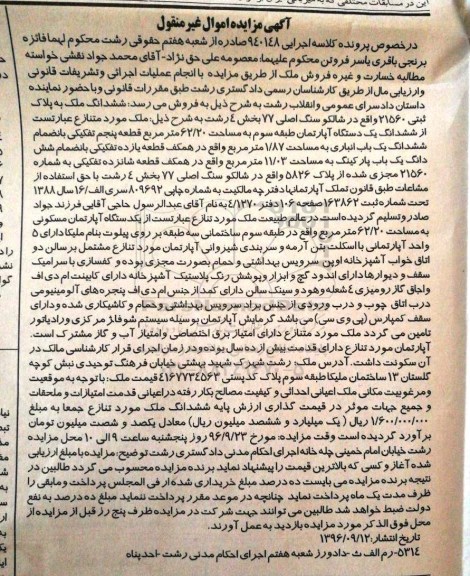 این در مسابقات مختلفی که به میزبانی
آگهی مزایده اموال غیر منقول
درخصوص پرونده کلاسه اجرایی ۹۴۰۱۴۸ صادره از شعبه هفتم حقوقی رشت محکوم لهما فائزه
برنجی باقری یاسر فروتن محکوم علیهما: معصومه علی حق نژاد- آقای محمد جواد نقشی خواسته
مطالبه خسارت و غیره فروش ملک از طریق مزایده با انجام عملیات اجرائی و تشریفات قانونی
و ارزیابی مال از طریق کارشناسان رسمی دادگستری رشت طبق مقررات قانونی و با حضور نماینده
دادستان دادسرای عمومی و انقلاب رشت به شرح ذیل به فروش می رسد: ششدانگ ملک به پلاک
ثبتی ۲۱۵۶۰ واقع در شالکو سنگ اصلی ۷۷ بخش ۴ رشت به شرح ذیل: ملک مورد تنازع عبارتست
از ششدانگ یک دستگاه آپارتمان طبقه سوم به مساحت ۶۲/۲۰ متر مربع قطعه پنجم تفکیکی بانضمام
ششدانگ یک باب انباری به مساحت ۱/۸۷ متر مربع واقع در همکف قطعه یازده تفکیکی بانضمام شش
دانگ یک باب پارکینگ به مساحت ۱۱/۰۳ متر مربع واقع در همکف قطعه شانزده تفکیکی به شماره
۲۱۵۶۰ مجزی شده از پلاک ۵۸۲۶ واقع در شالکو سنگ اصلی ۷۷ بخش ۴ رشت با حق استفاده از
مشاعات طبق قانون تملک آپارتمانها دفترچه مالکیت به شماره چاپی ۸۰۹۶۹۲ سری الف/۱۶ سال ۱۳۸۸
تحت شماره ثبت ۱۶۳۸۶۲ صفحه ۱۰۶ دفتر ۴/۱۲۷۰ به نام آقای عبدالرسول حاجی آقایی فرزند جواد
صادر و تسلیم گردیده است در عالم طبیعت ملک مورد تنازع عبارتست از یکدستگاه آپارتمان مسکونی
به مساحت ۶۲/۲۰ متر مربع واقع در طبقه سوم ساختمانی سه طبقه بر روی پیلوت بنام ملیکا دارای ۵
واحد آپارتمانی با اسکلت بتن آرمه و سربندی شیروانی آپارتمان مورد تنازع مشتمل بر سالن دو
اتاق خواب آشپزخانه اوپن سرویس بهداشتی و حمام بصورت مجزی بوده و کفسازی با سرامیک
سقف و دیوارها دارای اندود گچ و ابزار و پوشش رنگ پلاستیک آشپزخانه دارای کابینت ام دی اف
واجاق گاز رومیزی ۴ شعله وهود و سینک سالن دارای کمد از جنس ام دی اف پنجره های آلومینیومی
درب اتاق چوب و درب ورودی از جنس براد سرویس بهداشتی و حمام و کاشیکاری شده و دارای
سقف کمپارس (پی وی سی) می باشد گرمایش آپارتمان بوسیله سیستم شوفاژ مرکزی و رادیاتور
تامین می گردد ملک مورد متنازع دارای امتیاز برق اختصاصی و امتیاز آب و گاز مشترک است.
آپارتمان مورد تنازع دارای قدمت بیش از ده سال بوده و در زمان اجرای قرار کارشناسی مالک در
آن سکونت داشت. آدرس ملک: رشت شهرک شهید بهشتی خیابان فرهنگ توحیدی نبش کوچه
گلستان ۱۳ ساختمان ملیکا طبقه سوم پلاک کدپستی ۴۱۶۷۷۳۴۵۶۳ قیمت ملک: با توجه به موقعیت
و مرغوبیت مکانی ملک اعیانی احداثی و کیفیت مصالح بکار رفته در اعیانی قدمت امتیازات و ملحقات
و جمیع جهات موثر در قیمت گذاری ارزش پایه ششدانگ ملک مورد تنازع جمعا به مبلغ
۱/۶۰۰/۰۰۰/۰۰۰ ریال ( یک میلیارد و ششصد میلیون ریال) معادل یکصد و شصت میلیون تومان
برآورد گردیده است وقت مزایده: مورخ ۹۶/۹/۲۳ روز پنجشنبه ساعت ۹ الی ۱۰ محل مزایده
رشت خیابان امام خمینی چله خانه اجرای احکام مدنی دادگستری رشت توضیح: مزایده با مبلغ ارزیابی
شده آغاز و کسی که بالاترین قیمت را پیشنهاد نماید برنده مزایده محسوب می گردد طالبین در
نتیجه برنده مزایده می بایست ده درصد مبلغ خریداری شده را فی المجلس پرداخت و مابقی را
ظرف مدت یک ماه پرداخت نماید چنانچه در موعد مقرر پرداخت ننماید مبلغ ده درصد به نفع
دولت ضبط خواهد شد طالبین می توانند جهت شرکت در مزایده ظرف پنج رز قبل از مزایده از
محل فوق الذکر مورد مزایده بازدید به عمل آورند.
تاریخ انتشار: ۱۳۹۶/۰۹/۱۲
۵۳۱۴- رم الف ث -دادورز شعبه هفتم اجرای احکام مدنی رشت -احدپناه